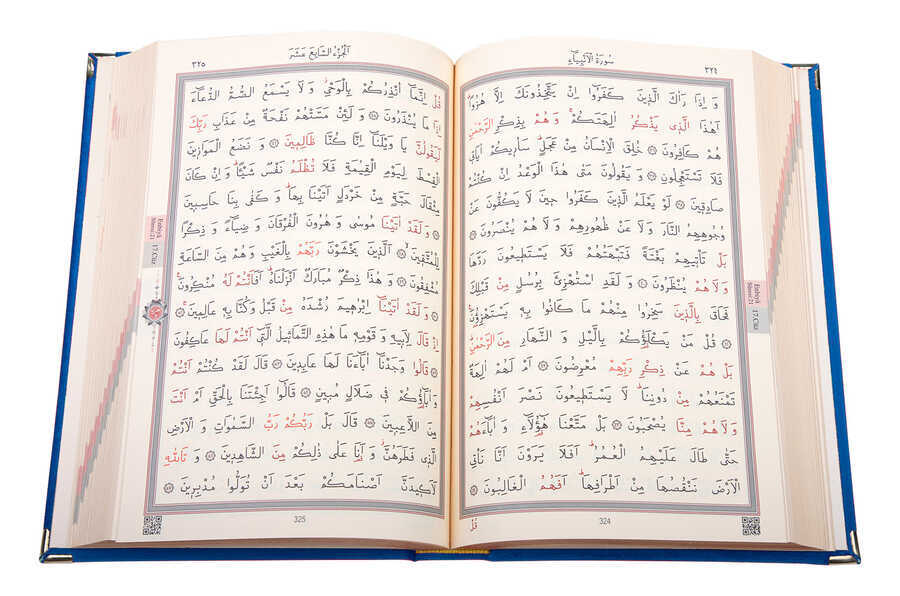 ٣٢٤ سُورَةُ الْاَنْبِيَاءِ
وَ اِذَا رَاٰكَ الَّذٖينَ كَفَرُٓوا اِنْ يَتَّخِذُونَكَ اِلَّا هُزُوًا
اَهٰذَا الَّذٖى يَذْكُرُ اٰلِهَتَكُمْ وَ هُمْ بِذِكْرِ الرَّحْمٰنِ
هُمْ كَافِرُونَ ﴿٣٦﴾ خُلِقَ الْاِنْسَانُ مِنْ عَجَلٍ سَاُرٖيكُمْ اٰيَاتٖى
فَلَا تَسْتَعْجِلُونِ ﴿٣٧﴾ وَ يَقُولُونَ مَتٰى هٰذَا الْوَعْدُ اِنْ كُنْتُمْ
صَادِقٖينَ ﴿٣٨﴾ لَوْ يَعْلَمُ الَّذٖينَ كَفَرُوا حٖينَ لَا يَكُفُّونَ عَنْ
وُجُوهِهِمُ النَّارَ وَ لَا عَنْ ظُهُورِهِمْ وَ لَا هُمْ يُنْصَرُونَ ﴿٣٩﴾
بَلْ تَاْتٖيهِمْ بَغْتَةً فَتَبْهَتُهُمْ فَلَا يَسْتَطٖيعُونَ رَدَّهَا
وَ لَا هُمْ يُنْظَرُونَ ﴿٤٠﴾ وَ لَقَدِ اسْتُهْزِئَ بِرُسُلٍ مِنْ قَبْلِكَ
فَحَاقَ بِالَّذٖينَ سَخِرُوا مِنْهُمْ مَا كَانُوا بِهٖ يَسْتَهْزِؤُنَ
﴿٤١﴾ قُلْ مَنْ يَكْلَؤُكُمْ بِالَّيْلِ وَ النَّهَارِ مِنَ الرَّحْمٰنِ
بَلْ هُمْ عَنْ ذِكْرِ رَبِّهِمْ مُعْرِضُونَ ﴿٤٢﴾ اَمْ لَهُمْ اٰلِهَةٌ
تَمْنَعُهُمْ مِنْ دُونِنَا لَا يَسْتَطٖيعُونَ نَصْرَ اَنْفُسِهِمْ
وَ لَا هُمْ مِنَّا يُصْحَبُونَ ﴿٤٣﴾ بَلْ مَتَّعْنَا هٰٓؤُلَٓاءِ وَ اٰبَٓاءَهُمْ
حَتّٰى طَالَ عَلَيْهِمُ الْعُمُرُ اَفَلَا يَرَوْنَ اَنَّا نَاْتِى
الْاَرْضَ نَنْقُصُهَا مِنْ اَطْرَافِهَا اَفَهُمُ الْغَالِبُونَ ﴿٤٤﴾
قُلْ
324
Enbiyâ
Sûresi:21
17.Cüz
الْجُزْءُ السَّابِعَ عَشَرَ ٣٢٥
قُلْ اِنَّمَٓا اُنْذِرُكُمْ بِالْوَحْىِ وَ لَا يَسْمَعُ الصُّمُّ الدُّعَٓاءَ
اِذَا مَا يُنْذَرُونَ ﴿٤٥﴾ وَ لَئِنْ مَسَّتْهُمْ نَفْحَةٌ مِنْ عَذَابِ رَبِّكَ
لَيَقُولُنَّ يَا وَيْلَنَٓا اِنَّا كُنَّا ظَالِمٖينَ ﴿٤٦﴾ وَ نَضَعُ الْمَوَازٖينَ
الْقِسْطَ لِيَوْمِ الْقِيٰمَةِ فَلَا تُظْلَمُ نَفْسٌ شَيْئًا وَ اِنْ كَانَ
مِثْقَالَ حَبَّةٍ مِنْ خَرْدَلٍ اَتَيْنَا بِهَا وَ كَفٰى بِنَا حَاسِبٖينَ
﴿٤٧﴾ وَ لَقَدْ اٰتَيْنَا مُوسٰى وَ هٰرُونَ الْفُرْقَانَ وَ ضِيَٓاءً وَ ذِكْرًا
لِلْمُتَّقٖينَ ﴿٤٨﴾ اَلَّذٖينَ يَخْشَوْنَ رَبَّهُمْ بِالْغَيْبِ وَ هُمْ مِنَ السَّاعَةِ
مُشْفِقُونَ ﴿٤٩﴾ وَ هٰذَا ذِكْرٌ مُبَارَكٌ اَنْزَلْنَاهُ اَفَاَنْتُمْ لَهُ مُنْكِرُونَ
﴿٥٠﴾ وَ لَقَدْ اٰتَيْنَٓا اِبْرٰهٖيمَ رُشْدَهُ مِنْ قَبْلُ وَ كُنَّا بِهٖ عَالِمٖينَ ﴿٥١﴾
اِذْ قَالَ لِاَبٖيهِ وَ قَوْمِهٖ مَا هٰذِهِ التَّمَاثٖيلُ الَّتٖى اَنْتُمْ لَهَا عَاكِفُونَ
﴿٥٢﴾ قَالُوا وَجَدْنَٓا اٰبَٓاءَنَا لَهَا عَابِدٖينَ ﴿٥٣﴾ قَالَ لَقَدْ كُنْتُمْ اَنْتُمْ
وَ اٰبَٓاؤُكُمْ فٖى ضَلَالٍ مُبٖينٍ ﴿٥٤﴾ قَالُٓوا اَجِئْتَنَا بِالْحَقِّ اَمْ اَنْتَ
مِنَ اللَّاعِبٖينَ ﴿٥٥﴾ قَالَ بَلْ رَبُّكُمْ رَبُّ السَّمٰوَاتِ وَ الْاَرْضِ
الَّذٖى فَطَرَهُنَّ وَ اَنَا عَلٰى ذٰلِكُمْ مِنَ الشَّاهِدٖينَ ﴿٥٦﴾ وَ تَاللّٰهِ
لَاَكٖيدَنَّ اَصْنَامَكُمْ بَعْدَ اَنْ تُوَلُّوا مُدْبِرٖينَ ﴿٥٧﴾
325
Enbiyâ
Sûresi:21
17.Cüz